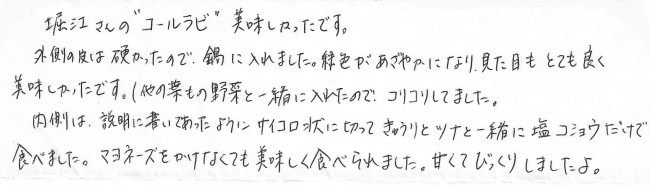 堀江さんの"コールラビ"美味しかったです。
外側の皮は硬かったので、鍋に入れました。緑色があざやかになり、見た目もとても良く
美味しかったです。(他の葉もの野菜と一緒に入れたので、コリコリしてました。
内側は、説明に書いてあったようにサイコロ状に切ってきゅうりとツナと一緒に塩コショウだけで
食べました。マヨネーズをかけなくても美味しく食べられました。甘くてびっくりしましたよ。